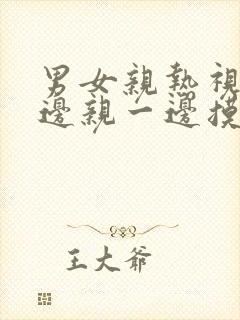 男女親熱視
邊親一邊摸
王大爺